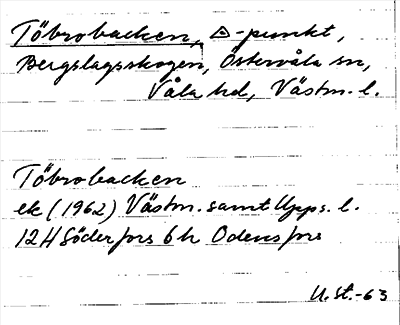 Töbrobacken, △-punkt,
Bergslagsskogen, Östervåla sn,
Våla hd, Västm. l.
Töbrobacken
ek (1962) Västm. samt Upps. l.
12H Söderfors 6h Odensfors
U. St. -63